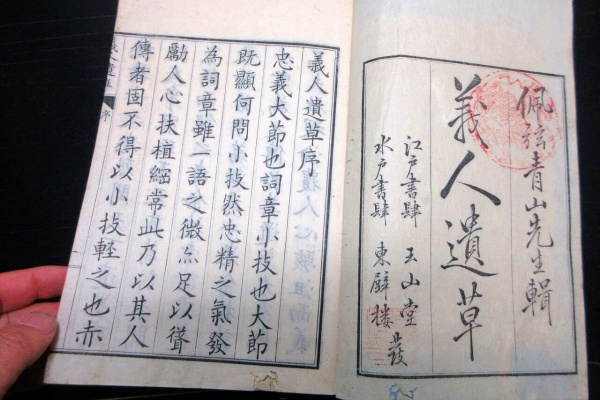 佩弦青山先生輯
義人遺草
江戶書肆 玉山堂
水戶書肆 東壁樓 發
義人遺草序
忠義大節也詞章小技也大節
既顯何問小技然忠精之氣發
為詞章雖一語之微亦足以聳
勵人心扶植綱常此乃以其人
傳者固不得以小技輕之也赤
序